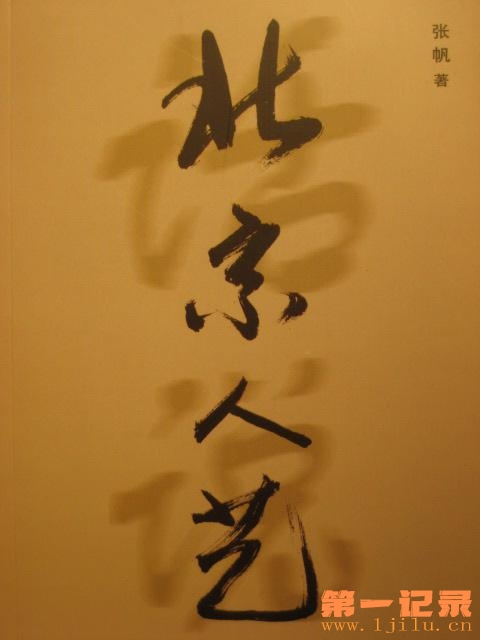 张帆 著
北京人艺
话说
第一记录
www.1jilu.cn